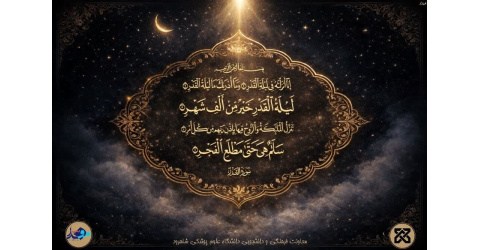 بسم الله الرحمن الرحيم
إِنَّا أَنزَلْنَاهُ فِي لَيْلَةِ الْقَدْرِ ۝ وَمَا أَدْرَاكَ مَا لَيْلَةُ الْقَدْرِ ۝
لَيْلَةُ الْقَدْرِ خَيْرٌ مِّنْ أَلْفِ شَهْرٍ ۝
تَنَزَّلُ الْمَلَائِكَةُ وَالرُّوحُ فِيهَا بِإِذْنِ رَبِّهِم مِّن كُلِّ أَمْرٍ ۝
سَلَامٌ هِيَ حَتَّىٰ مَطْلَعِ الْفَجْرِ ۝
سورة القدر
معاونت فرهنگی و دانشجویی دانشگاه علوم پزشکی شاهرود